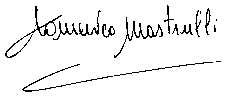 Domenico Mastrulli